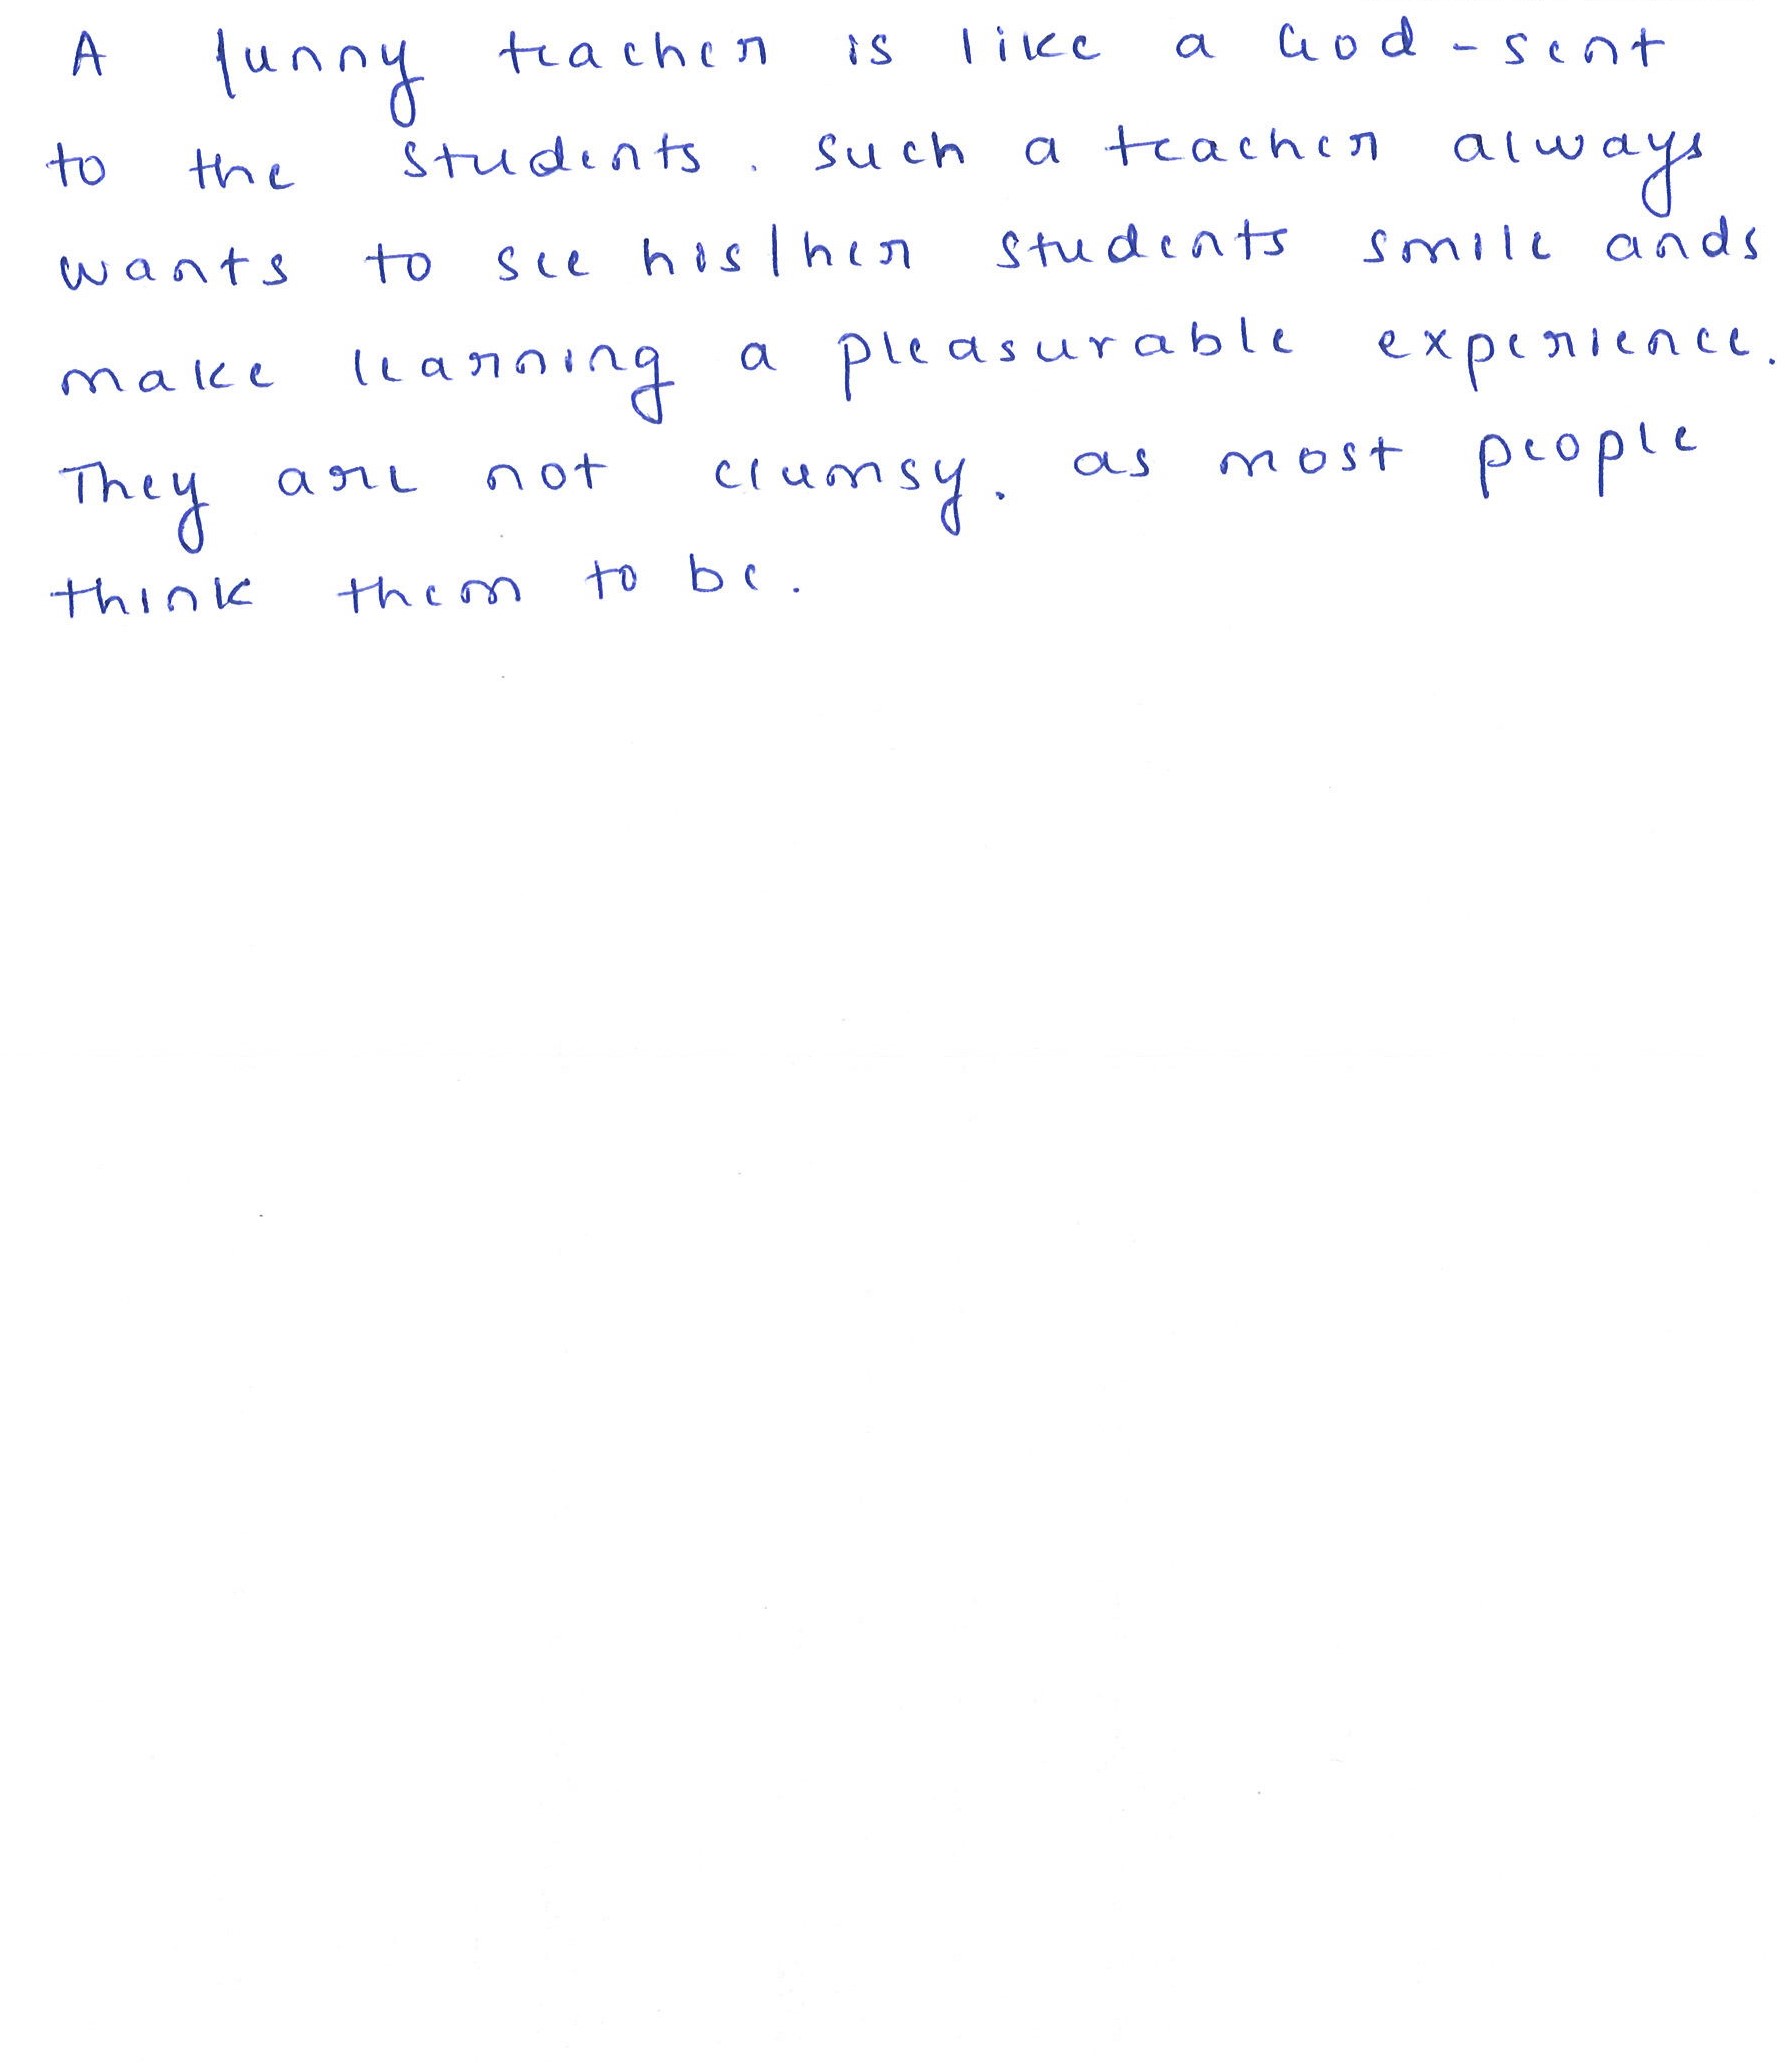 A funny teacher is like a God-sent
to the students. such a teacher always
wants to see his/her students smile ands
make learning a pleasurable experience.
They are not clumsy. as most people
think them to be.